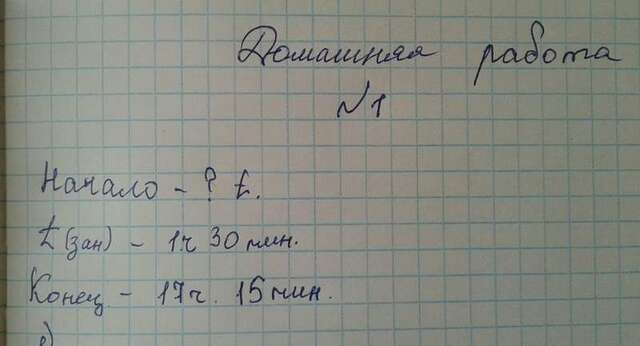 Домашняя работа
№1
Начало - ? t.
t(зан) - 1ч 30 мин.
Конец - 17ч. 15 мин.